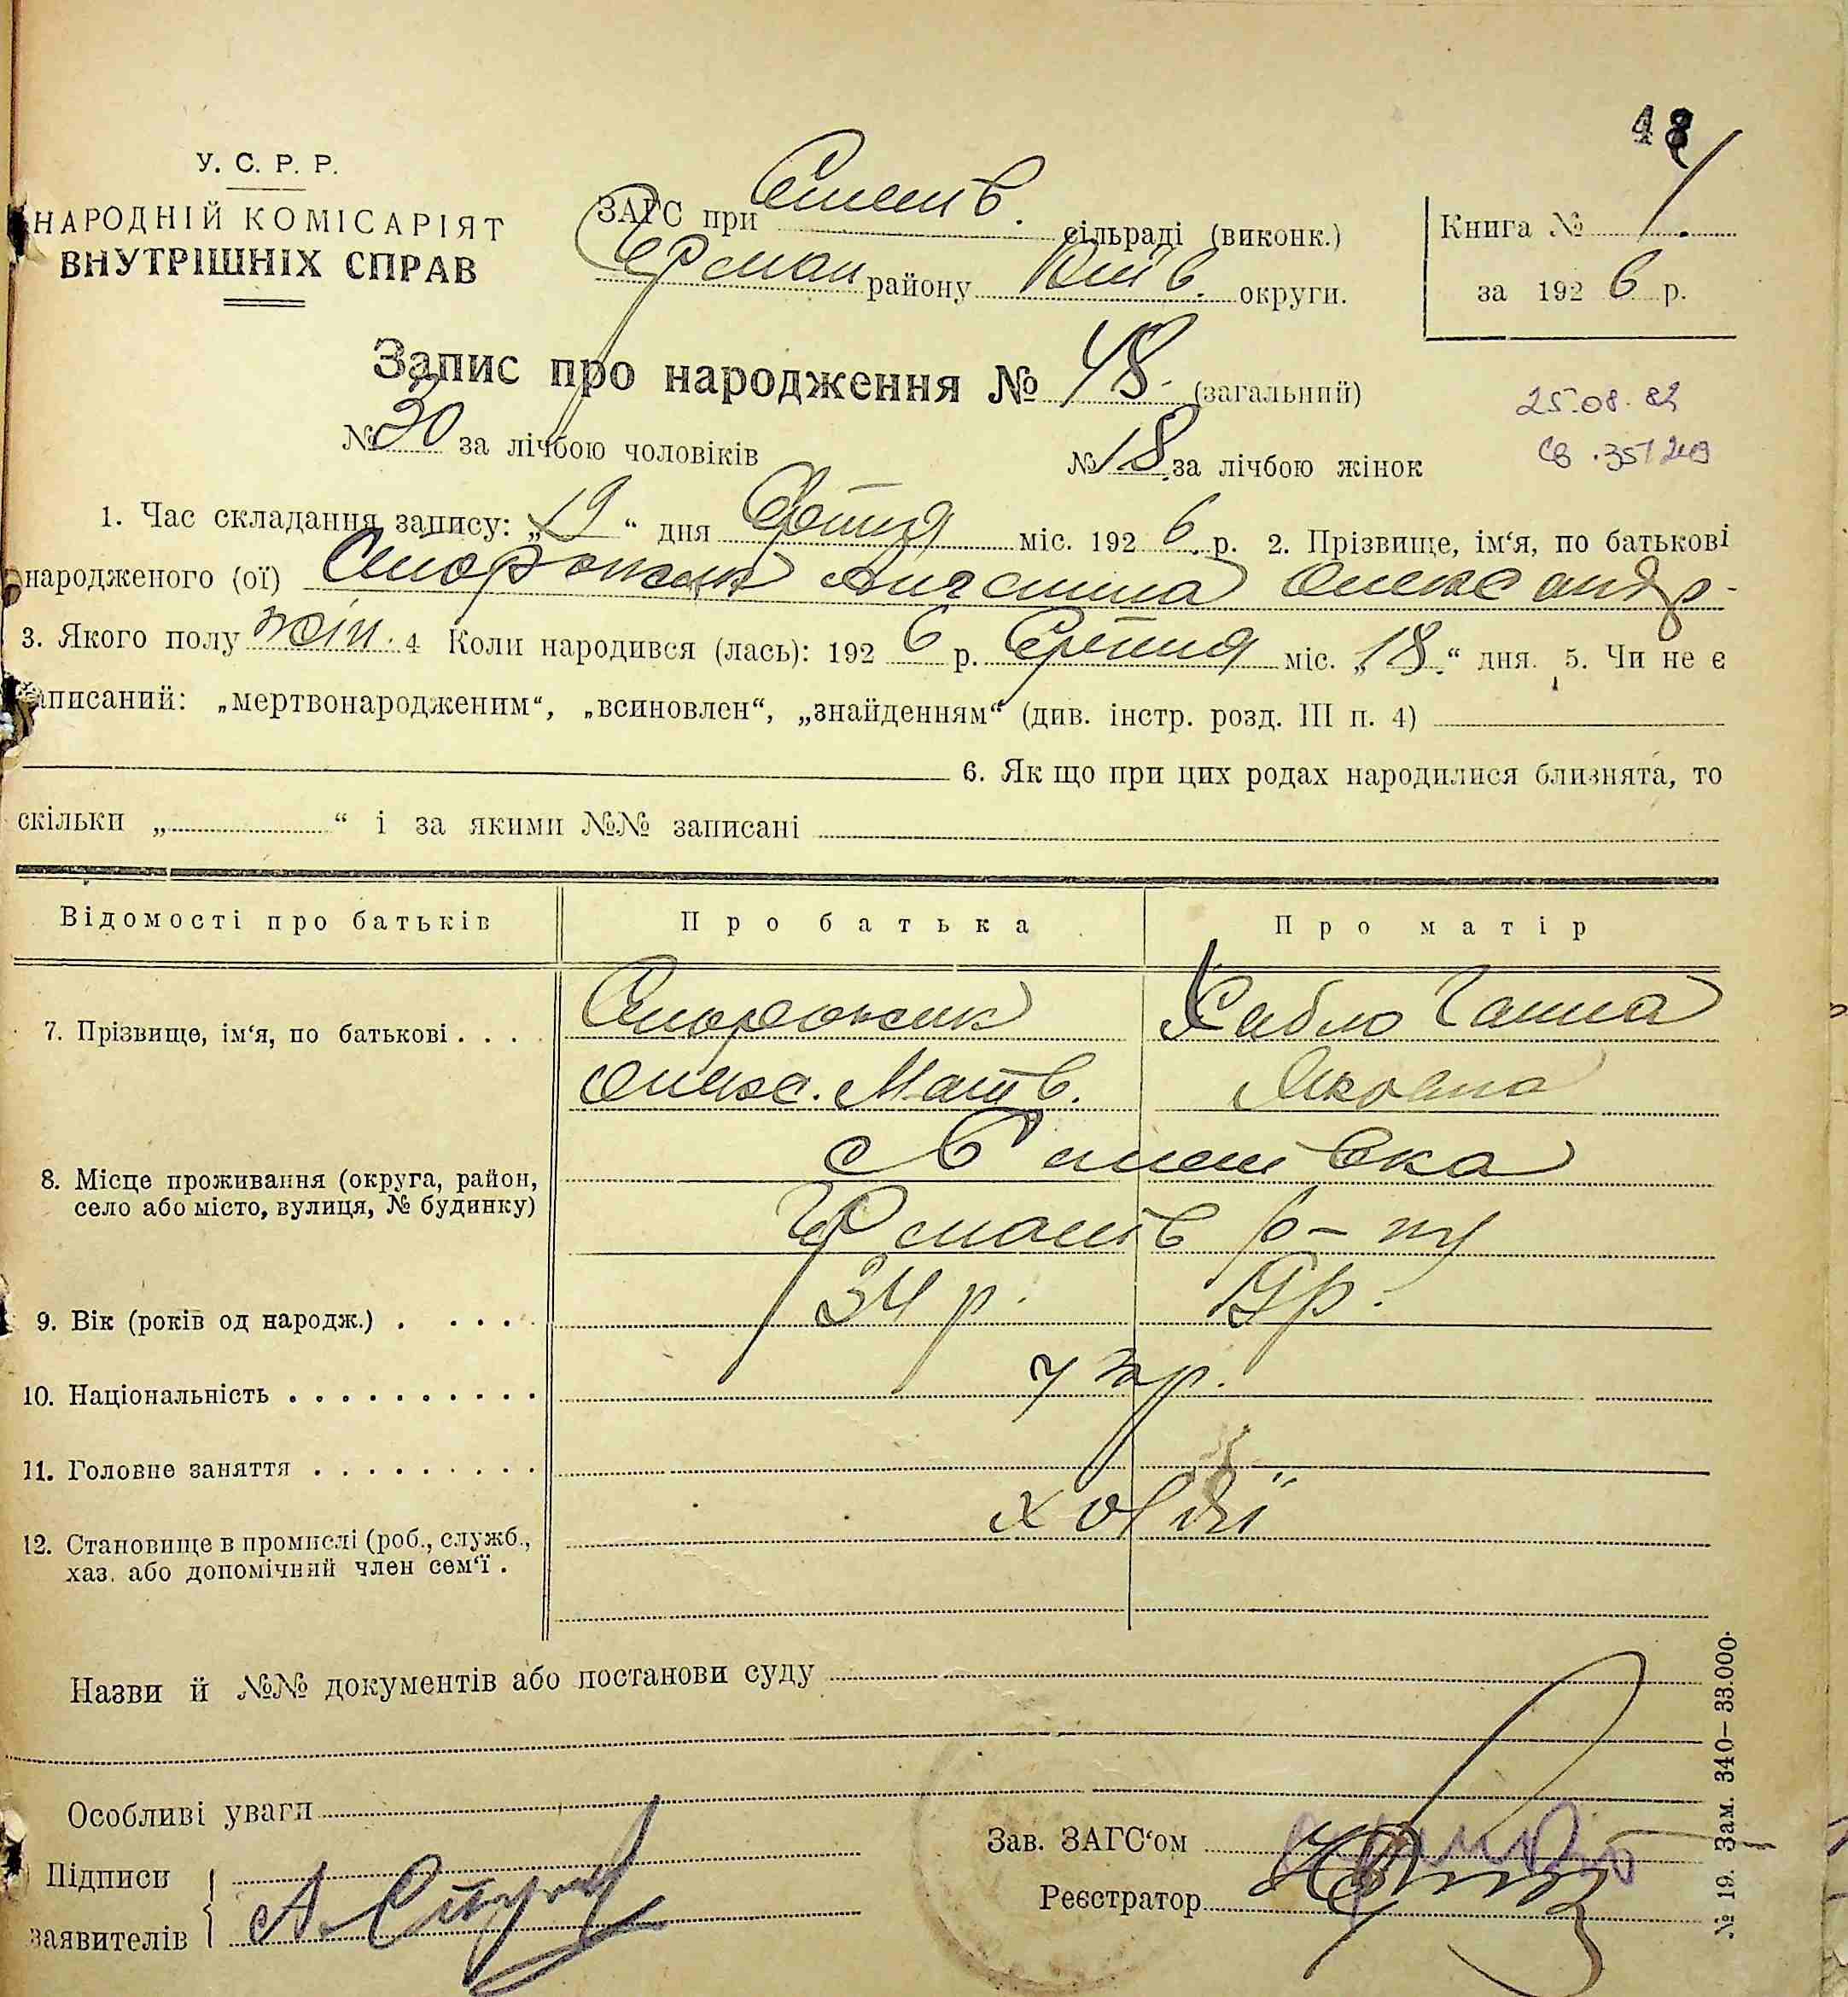 48
У. С. Р. Р.
НАРОДНІЙ КОМІСАРІЯТ
ВНУТРІШНІХ СПРАВ
ЗАГС при Степів. сільраді (виконк.)
району Київ. округи.
Книга № 1.
за 1926 р.
Запис про народження № 48. (загальний)
№ 30 за лічбою чоловіків
№ 18 за лічбою жінок
25.08.82
1. Час складання запису: „19“ дня Серпня міс. 1926 р. 2. Прізвище, ім‘я, по батькові
народженого (ої) Сторожик Ангелина Олександр-
3. Якого полу жін. 4 Коли народився (лась): 1926 р. Серпня міс. „18.“ дня. 5. Чи не є
записаний: „мертвонародженим“, „всиновлен“, „знайденням“ (див. інстр. розд. III п. 4)
6. Як що при цих родах народилися близнята, то
скільки „ “ і за якими №№ записані
Відомості про батьків Про батька Про матір
7. Прізвище, ім‘я, по батькові . . . . Сторожик Ганна
Олекс. Матв. Яковна
8. Місце проживання (округа, район,
село або місто, вулиця, № будинку)
р-ну
9. Вік (років од народж.) . . . . . 34 р.
10. Національність . . . . . . . . . . укр.
11. Головне заняття . . . . . . . . .
12. Становище в промислі (роб., служб.,
хаз. або допомічний член сем‘ї .
Назви й №№ документів або постанови суду
Особливі уваги
Підписи
заявителів
Зав. ЗАГС‘ом
Реєстратор
№ 19. Зам. 340—33.000.